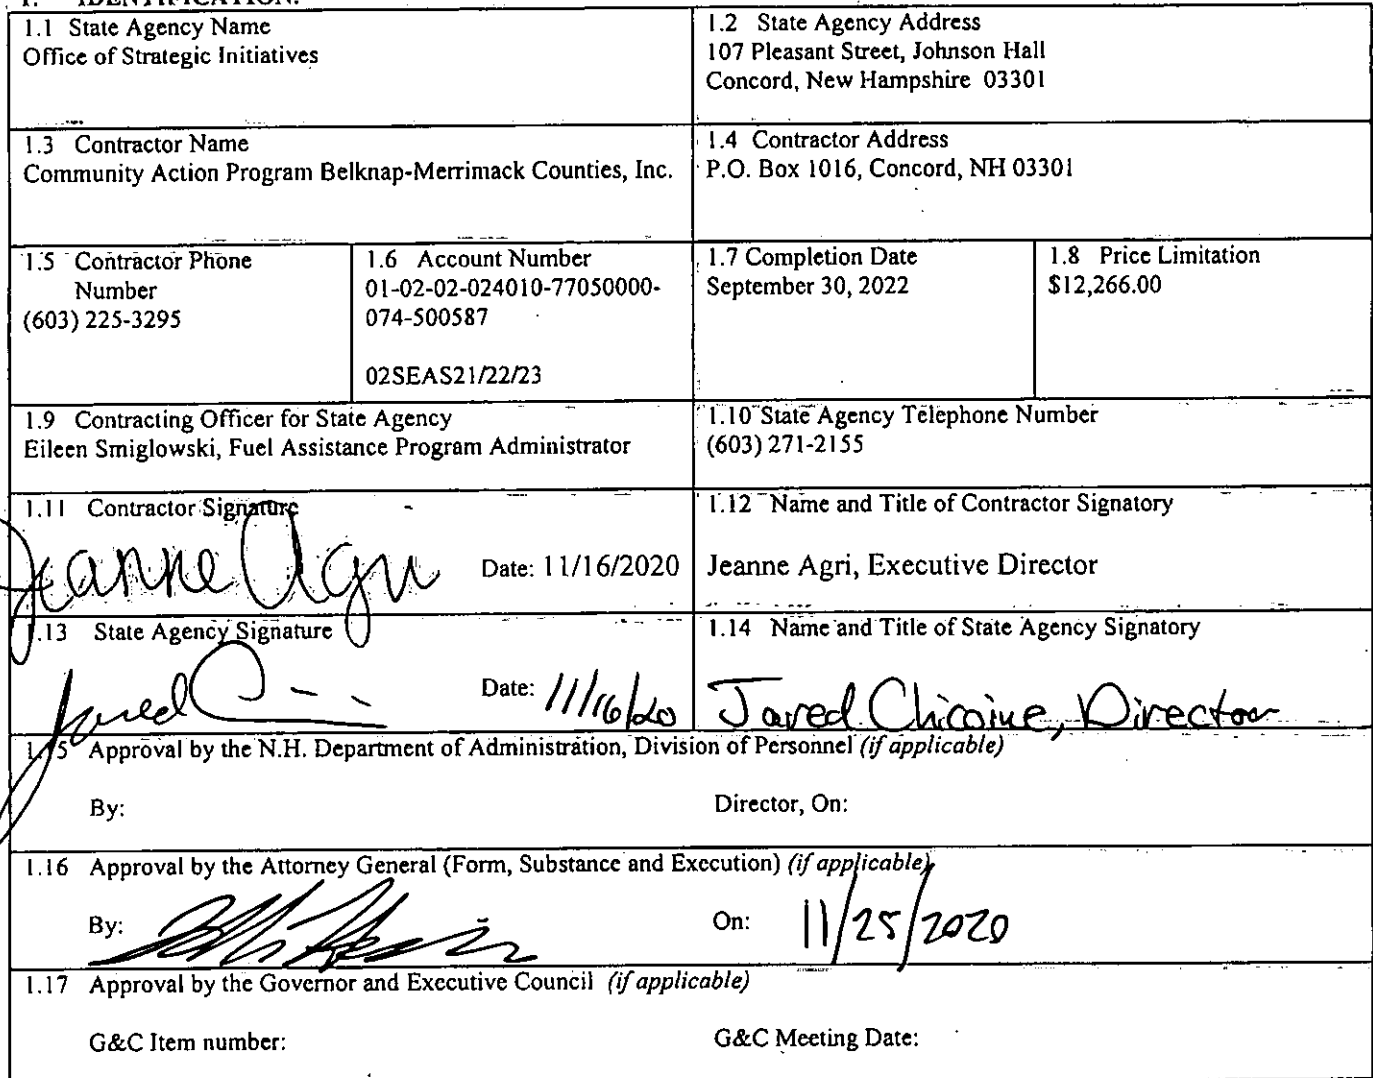 1. IDENTIFICATION.
1.1 State Agency Name
Office of Strategic Initiatives
1.2 State Agency Address
107 Pleasant Street, Johnson Hall
Concord, New Hampshire 03301
1.3 Contractor Name
Community Action Program Belknap-Merrimack Counties, Inc.
1.4 Contractor Address
P.O. Box 1016, Concord, NH 03301
1.5 Contractor Phone
Number
(603) 225-3295
1.6 Account Number
01-02-02-024010-77050000-
074-500587
02SEAS21/22/23
1.7 Completion Date
September 30, 2022
1.8 Price Limitation
$12,266.00
1.9 Contracting Officer for State Agency
Eileen Smiglowski, Fuel Assistance Program Administrator
1.10 State Agency Telephone Number
(603) 271-2155
1.11 Contractor Signature
Jeanne Agri Date: 11/16/2020
1.12 Name and Title of Contractor Signatory
Jeanne Agri, Executive Director
1.13 State Agency Signature
Jared Date: 11/16/20
1.14 Name and Title of State Agency Signatory
Jared Chicoine, Director
1.15 Approval by the N.H. Department of Administration, Division of Personnel (if applicable)
By: Director, On:
1.16 Approval by the Attorney General (Form, Substance and Execution) (if applicable)
By: On: 11/25/2020
1.17 Approval by the Governor and Executive Council (if applicable)
G&C Item number: G&C Meeting Date: